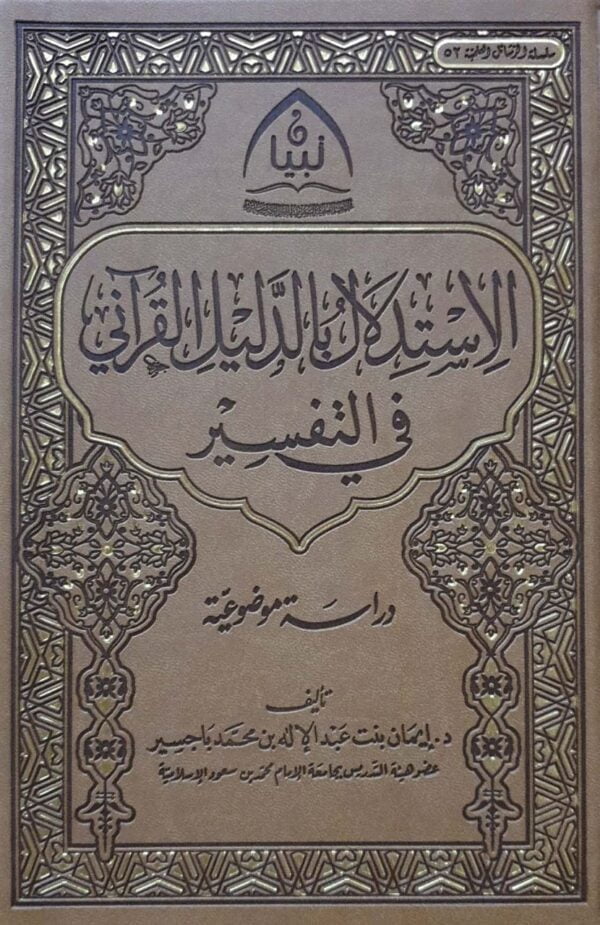 سلسلة الرسائل العلمية ٥٢
تبيان
الاِسْتِدلَالُ بالدَّليْلِ القُرآني
في التفسِيْر
دراسَة موضوعيَّة
تأليف
د. إيمان بنت عَبد الإله بن محمّد باجسير
عضو هيئة التدريس بجامعة الإمام محمّد بن سعود الإسلاميّة